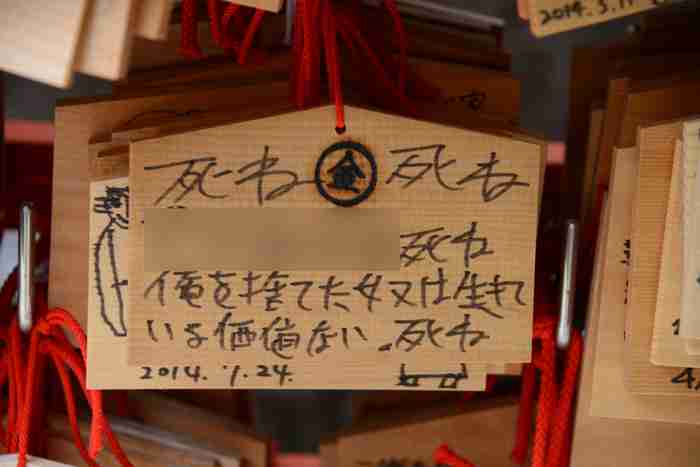 2014.3.11
死ね 金 死ね
死ね
俺を捨てた女又は生きて
いる価値ない。死ね
2014. 1.24.